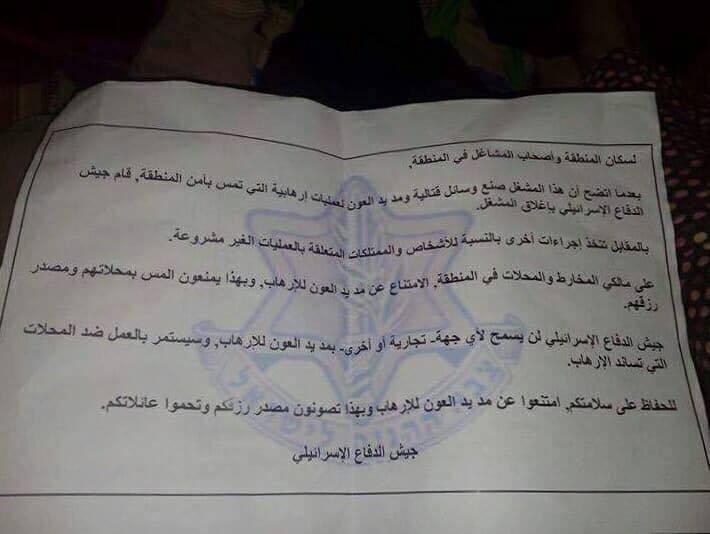 لسكان المنطقة وأصحاب المشاغل في المنطقة,
بعدما اتضح أن هذا المشغل صنع وسائل قتالية ومد يد العون لعمليات إرهابية التي تمس بأمن المنطقة, قام جيش
الدفاع الإسرائيلي بإغلاق المشغل.
بالمقابل تتخذ إجراءات أخرى بالنسبة للأشخاص والممتلكات المتعلقة بالعمليات الغير مشروعة.
على مالكي المخارط والمحلات في المنطقة, الامتناع عن مد يد العون للإرهاب, وبهذا يمنعون المس بمحلاتهم ومصدر
رزقهم.
جيش الدفاع الإسرائيلي لن يسمح لأي جهة- تجارية أو أخرى- بمد يد العون للإرهاب, وسيستمر بالعمل ضد المحلات
التي تساند الإرهاب.
للحفاظ على سلامتكم, امتنعوا عن مد يد العون للإرهاب وبهذا تصونون مصدر رزقكم وتحموا عائلاتكم.
جيش الدفاع الإسرائيلي
צבא ההגנה לישראל